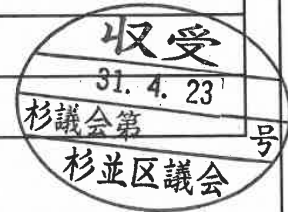 収受
31. 4. 23
杉議会第 号
杉並区議会